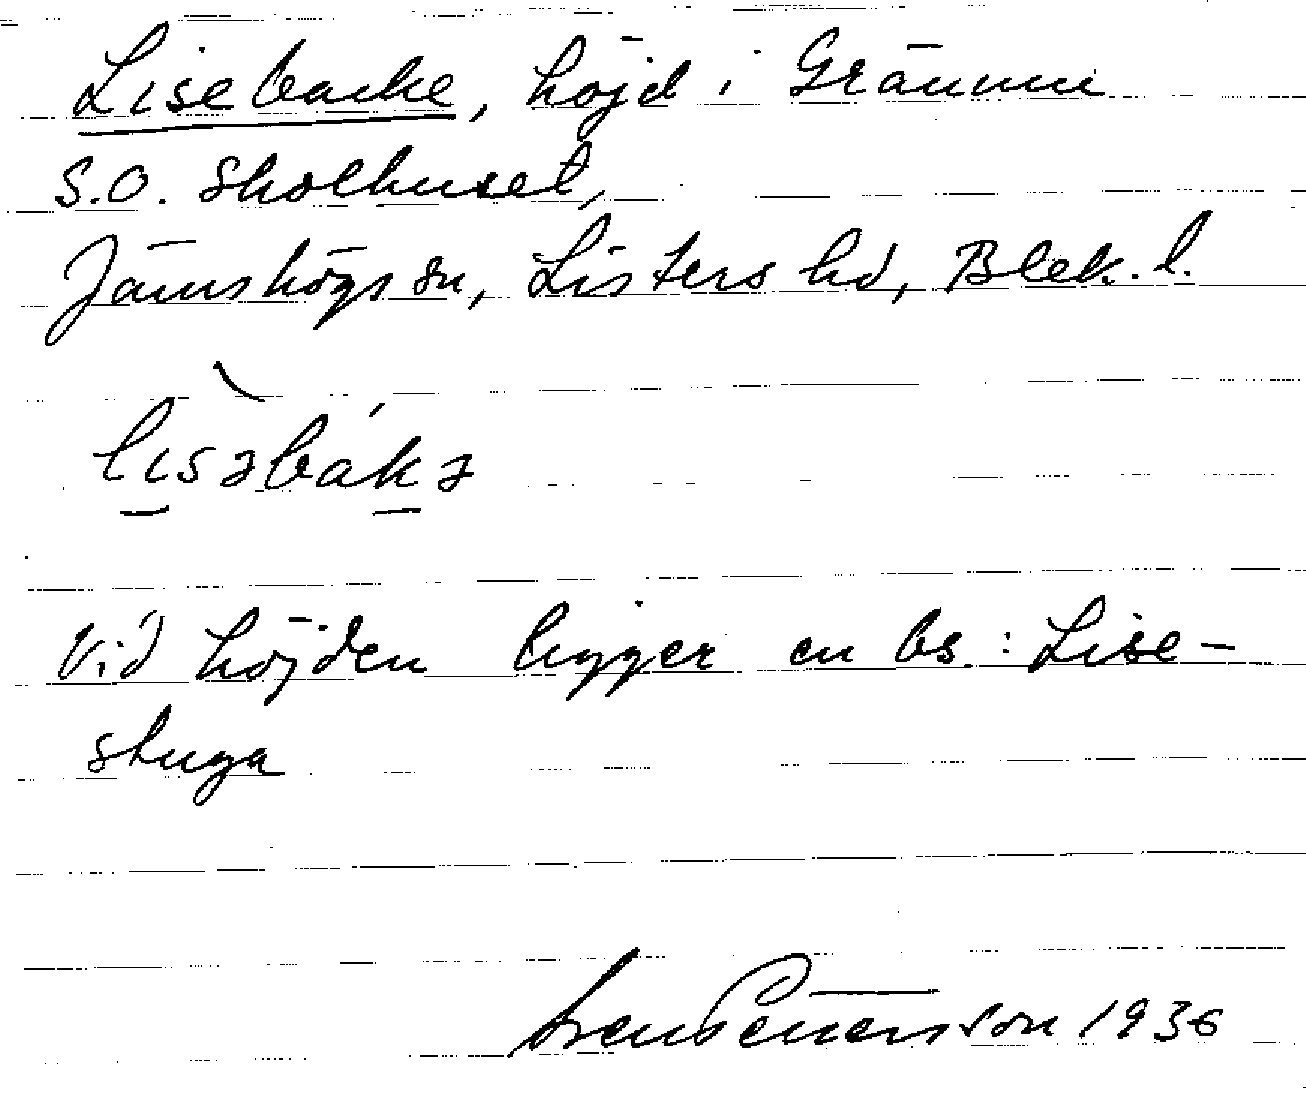 Lisebacke, höjd i Grämme
S.O. Skolhuset,
Jämshögs sn, Listers hd, Blek. l.
lisəbákə
Vid höjden ligger en bs: Lise-
stuga
Sven Pettersson 1936